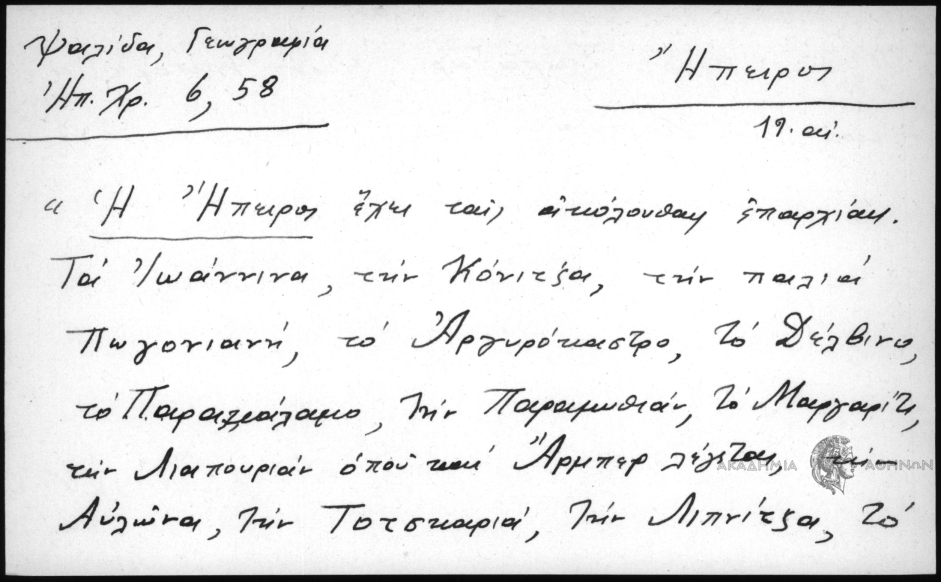 Ψαλίδα, Γεωγραφία
Ἠπ. Χρ. 6, 58
Ἤπειρος
19. αἰ.
« Ἡ Ἤπειρος ἔχει ταῖς ἀκόλουθαις ἐπαρχίαις.
Τὰ Ἰωάννινα, τὴν Κόνιτζα, τὴν παλιὰ
Πωγονιανή, τὸ Ἀργυρόκαστρο, τὸ Δέλβινο,
τὸ Παρακάλαμο, τὴν Παραμυθιάν, τὸ Μαργαρίτι,
τὴν Λιαπουριὰν ὁποῦ καὶ Ἄρμπερ λέγεται, τὴν
ΑΚΑΔΗΜΙΑ ΑΘΗΝΩΝ
Αὐλῶνα, τὴν Τοτσκαριά, τὴν Λιπνίτζα, τὸ